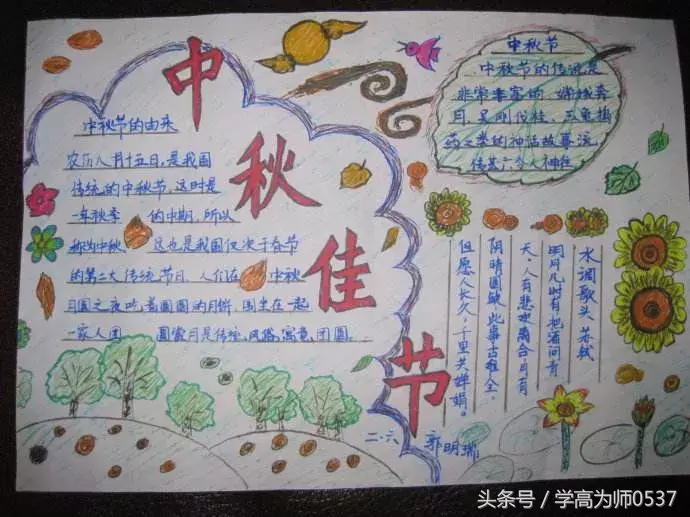 中秋佳节
中秋节的由来
农历八月十五日,是我国
传统的中秋节,这时是
一年秋季 的中期,所以
称为中秋 这也是我国仅次于春节
的第二大传统节日,人们在 中秋
月圆之夜吃着圆圆的月饼,围坐在一起
一家人团 圆赏月是传统,风俗,寓意,团圆。
中秋节
中秋节的传说是
非常丰富的,嫦娥奔
月,吴刚伐桂,玉兔捣
药之类的神话故事流
传甚广
水调歌头 苏轼
明月几时有把酒问青
天,人有悲欢离合月有
阴晴圆缺此事古难全。
但愿人长久,千里共婵娟。
二.六 郭明瑞
头条号/学高为师0537